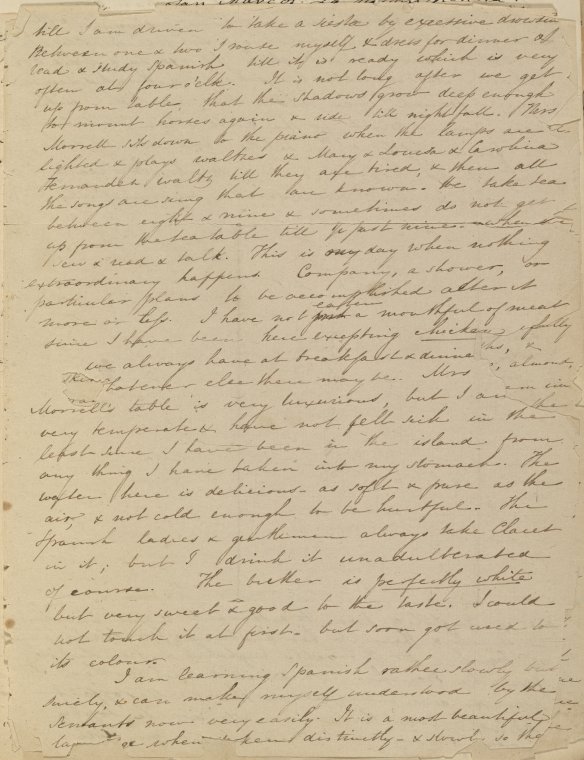 till I am driven to take a siesta by excessive drowsin
Between one & two I rouse myself & dress for dinner or
read & study Spanish till it is ready which is very
often at four o'clk. It is not long after we get
up from table, that the shadows grow deep enough
to mount horses again & ride till nightfall. Mrs
Morrell sits down to the piano when the lamps are
lighted & plays waltzes & Mary & Louisa & Carolina
Fernandez waltz till they are tired, & then all
the songs are sung that are known. We take tea
between eight & nine & sometimes do not get
up from the tea table till ½ past nine. when we
sew & read & talk. This is my day when nothing
extraordinary happens. Company, a shower, or
particular plans to be accomplished alter it
more or less. I have not eaten a mouthful of meat
since I have been here excepting chicken
we always have at breakfast & dinne
hatever else there may be. Mrs
Morrell's table is very luxurious, but I am
very temperate & have not felt sick in the
least since I have been in the island from
any thing I have taken into my stomach. The
water here is delicious - as soft & pure as the
air, & not cold enough to be hurtful. The
Spanish ladies & gentlemen always take Claret
in it; but I drink it unadulterated
of course. The butter is perfectly white
but very sweet & good to the taste. I could
not touch it at first - but soon got used to
its colour.
I am learning Spanish rather slowly but
surely, & can make myself understood by the
servants now very easily. It is a most beautiful
when distinctly - & slowl so the